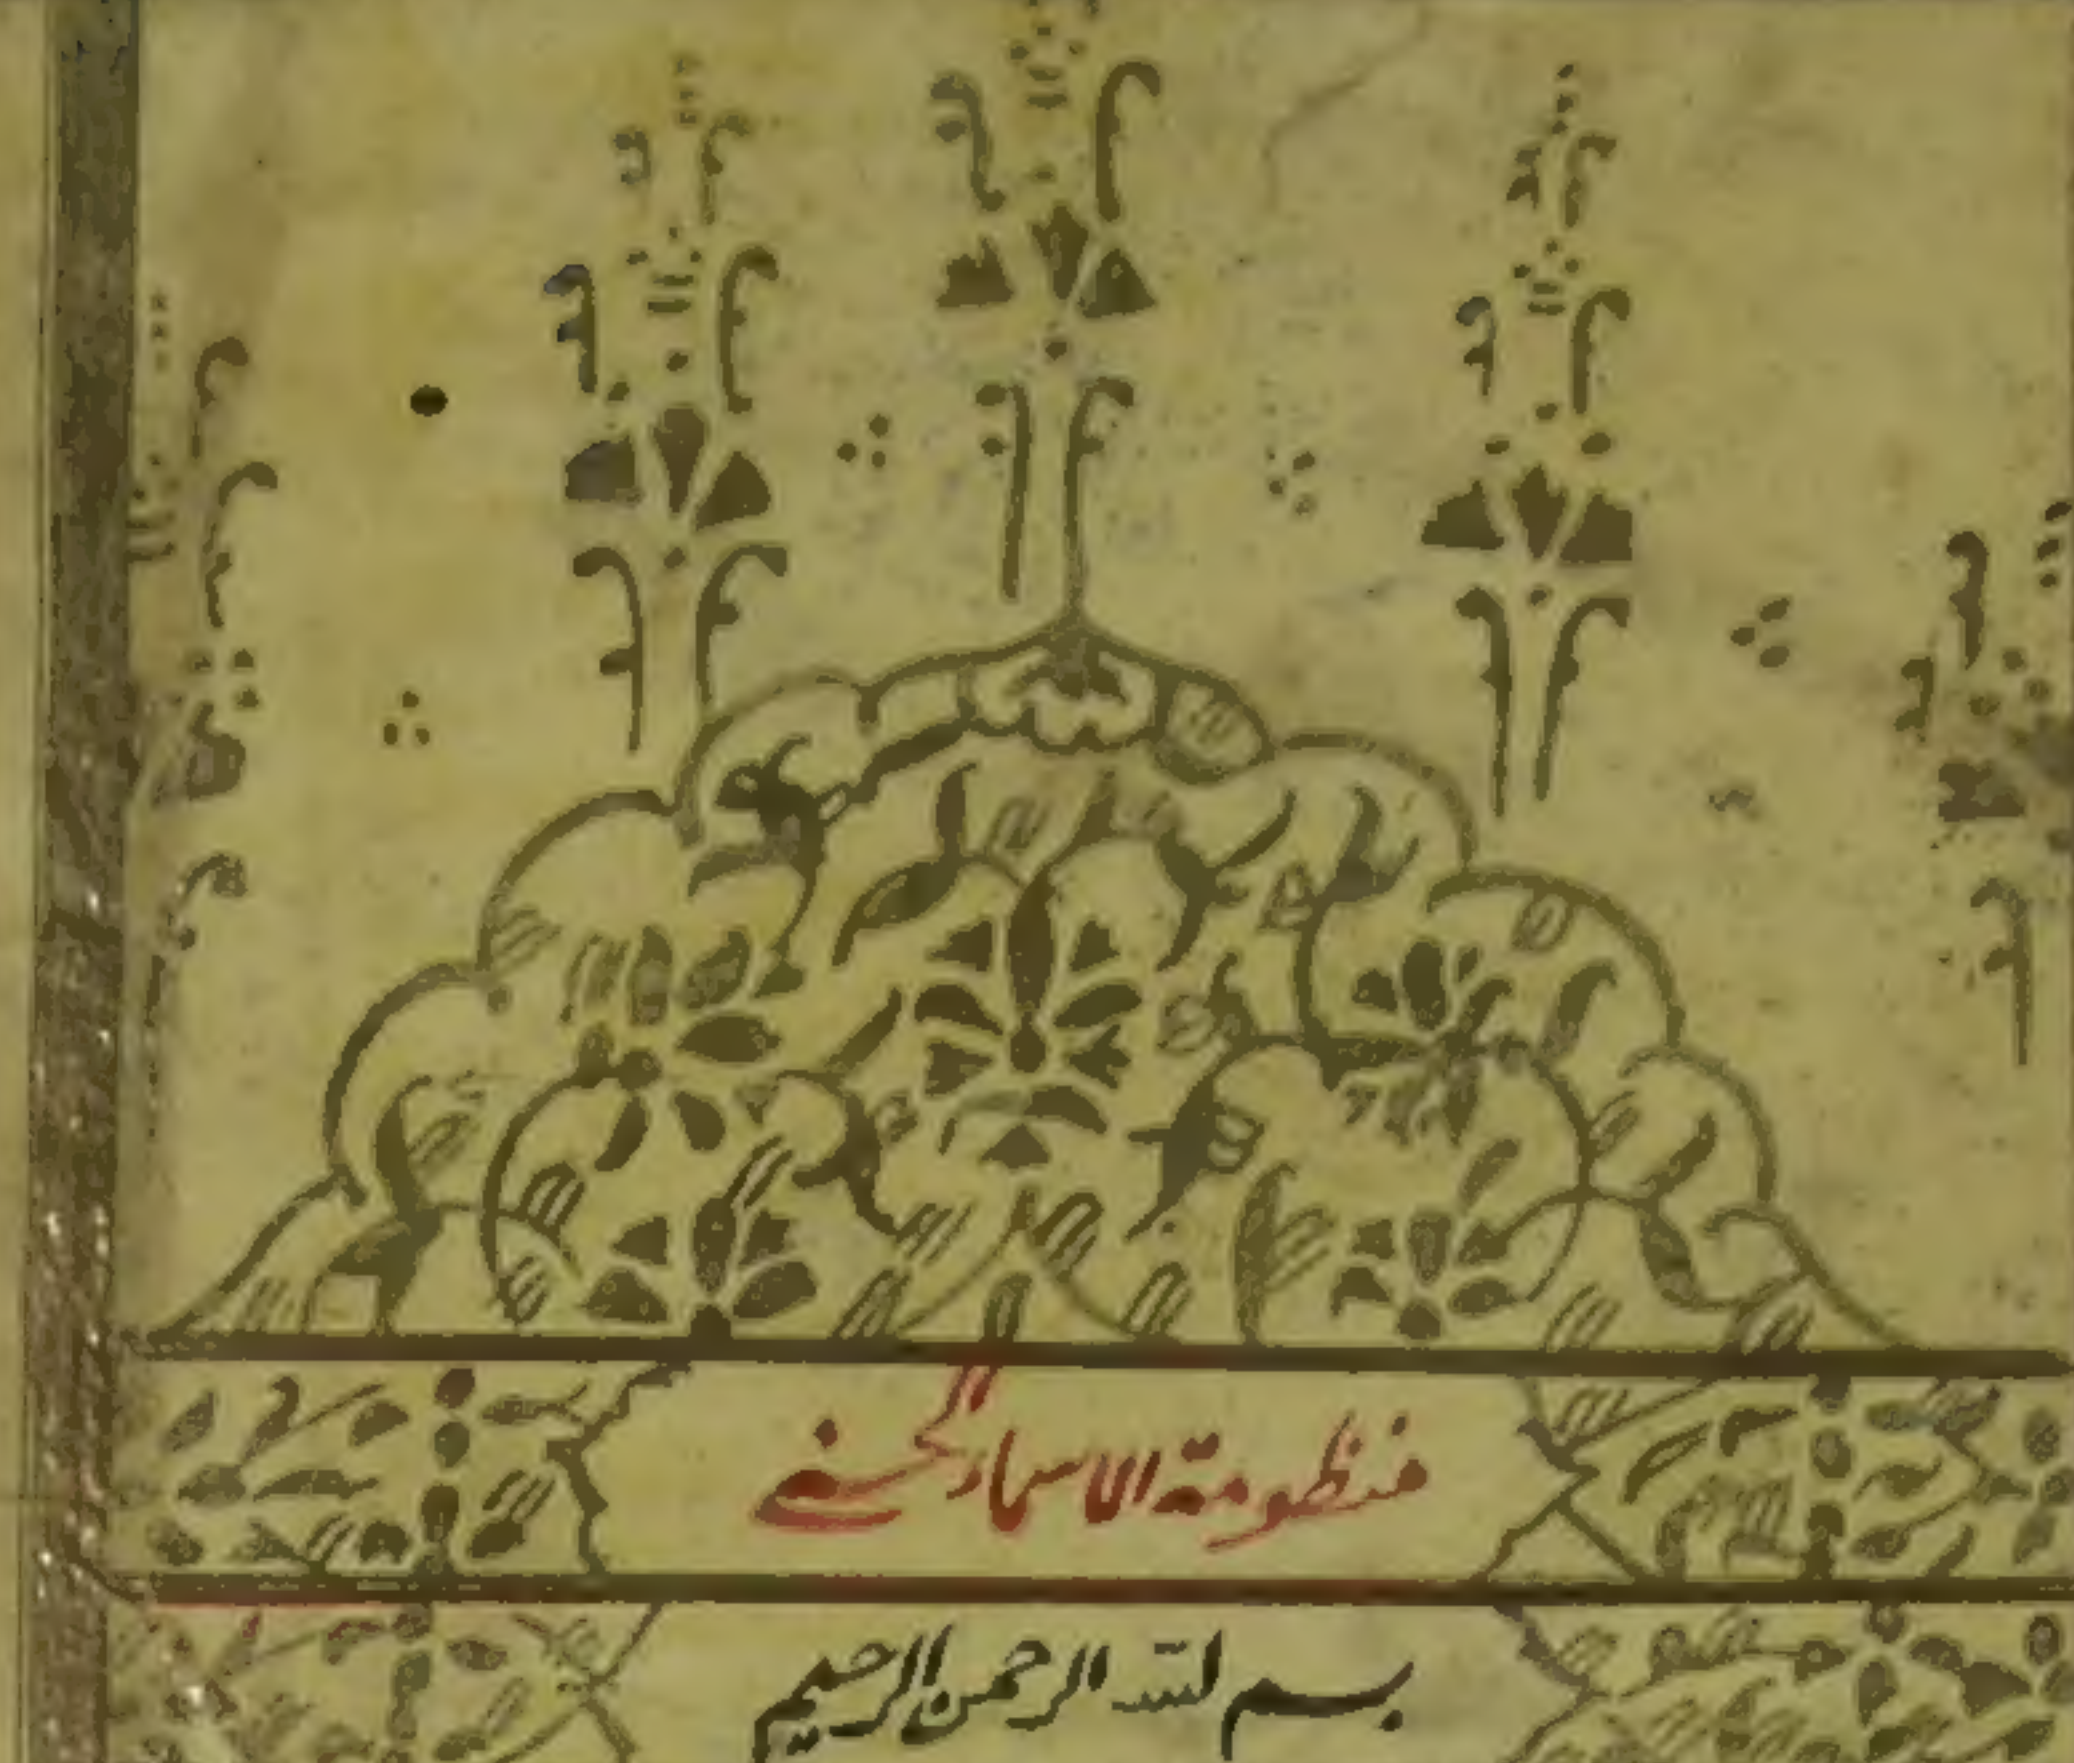 منظومة الاسماء الحسنى
بسم الله الرحمن الرحيم